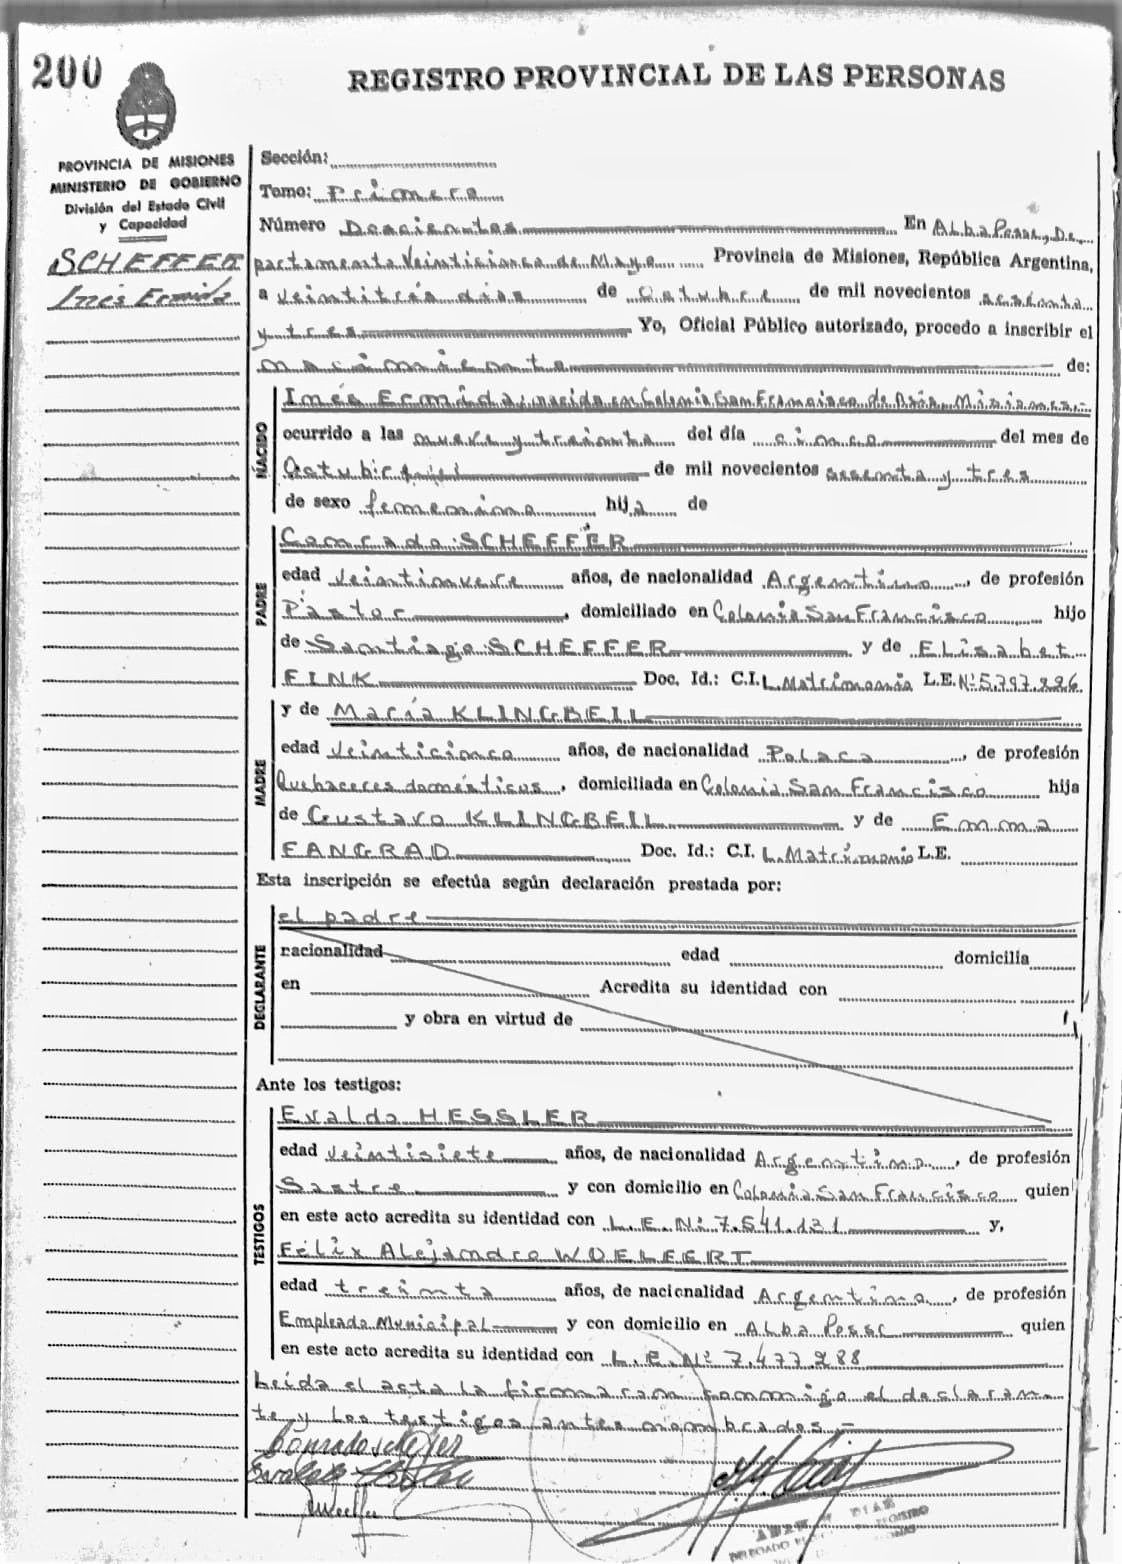 200
REGISTRO PROVINCIAL DE LAS PERSONAS
PROVINCIA DE MISIONES
MINISTERIO DE GOBIERNO
División del Estado Civil
y Capacidad
SCHEFFER
Inés Ermida
Sección:
Tomo: Primera
Número Doscientos En Alba Posse, De,
partamento Veinticinco de Mayo Provincia de Misiones, República Argentina,
a veintitrés días de Octubre de mil novecientos sesenta
y tres Yo, Oficial Público autorizado, procedo a inscribir el
nacimiento de:
NACIDO
Inés Ermida, nacida en Colonia San Francisco de Asís, Misiones,-
ocurrido a las nueve y treinta del día cinco del mes de
Octubre de mil novecientos sesenta y tres
de sexo femenino hija de
PADRE
Conrado SCHEFFER
edad Veintinueve años, de nacionalidad Argentino, de profesión
Pastor, domiciliado en Colonia San Francisco hijo
de Santiago SCHEFFER y de Elisabet
FINK Doc. Id.: C.I. L. Matrimonio L.E. Nº 5.797.226
MADRE
y de María KLINGBEIL
edad Veinticinco años, de nacionalidad Polaca, de profesión
Quehaceres domésticos, domiciliada en Colonia San Francisco hija
de Gustavo KLINGBEIL y de Emma
FANGRAD Doc. Id.: C.I. L. Matrimonio L.E.
Esta inscripción se efectúa según declaración prestada por:
DECLARANTE
el padre
nacionalidad edad domicilia
en Acredita su identidad con
y obra en virtud de
Ante los testigos:
TESTIGOS
Evaldo HESSLER
edad Veintisiete años, de nacionalidad Argentino, de profesión
Sastre y con domicilio en Colonia San Francisco quien
en este acto acredita su identidad con L.E. Nº 7.541.131 y,
Félix Alejandro WOELFERT
edad treinta años, de nacionalidad Argentino, de profesión
Empleado Municipal y con domicilio en Alba Posse quien
en este acto acredita su identidad con L.E. Nº 7.477.288
Leída el acta la firmaron conmigo el declaran-
te y los testigos antes nombrados,-
Conrado Scheffer
DIAZ
DELEGADO REGISTRO